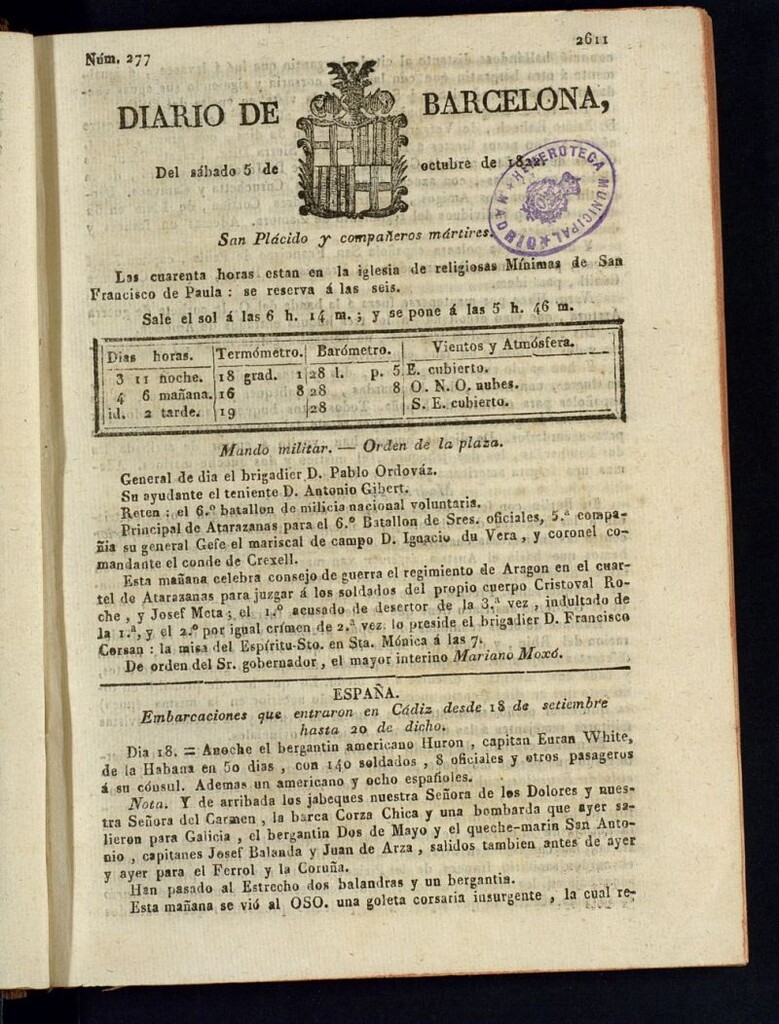 Núm. 277
2611
DIARIO DE BARCELONA,
Del sábado 5 de octubre de 1822.
HEMEROTECA MUNICIPAL MADRID
San Plácido y compañeros mártires.
Las cuarenta horas estan en la iglesia de religiosas Mínimas de San
Francisco de Paula : se reserva á las seis.
Sale el sol á las 6 h. 14 m. ; y se pone á las 5 h. 46 m.
Dias horas. Termómetro. Barómetro. Vientos y Atmósfera.
3 11 noche. 18 grad. 1 28 l. p. 5 E. cubierto.
4 6 mañana. 16 8 28 8 O. N. O. nubes.
id. 2 tarde. 19 28 S. E. cubierto.
Mando militar. — Orden de la plaza.
General de dia el brigadier D. Pablo Ordováz.
Su ayudante el teniente D. Antonio Gibert.
Reten : el 6.º batallon de milicia nacional voluntaria.
Principal de Atarazanas para el 6.º Batallon de Sres. oficiales, 5.ª compa-
ñia su general Gefe el mariscal de campo D. Ignacio du Vera , y coronel co-
mandante el conde de Crexell.
Esta mañana celebra consejo de guerra el regimiento de Aragon en el cuar-
tel de Atarazanas para juzgar á los soldados del propio cuerpo Cristoval Ro-
che , y Josef Meta ; el 1.º acusado de desertor de la 3.ª vez , indultado de
la 1.ª, y el 2.º por igual crímen de 2.ª vez. lo preside el brigadier D. Francisco
Corsan : la misa del Espíritu-Sto. en Sta. Mónica á las 7.
De orden del Sr. gobernador , el mayor interino Mariano Moxó.
ESPAÑA.
Embarcaciones que entraron en Cádiz desde 18 de setiembre
hasta 20 de dicho.
Dia 18. = Anoche el bergantin americano Huron , capitan Euran White,
de la Habana en 50 dias , con 140 soldados , 8 oficiales y otros pasageros
á su cónsul. Ademas un americano y ocho españoles.
Nota. Y de arribada los jabeques nuestra Señora de los Dolores y nues-
tra Señora del Carmen , la barca Corza Chica y una bombarda que ayer sa-
lieron para Galicia , el bergantin Dos de Mayo y el queche-marin San Anto-
nio , capitanes Josef Balanda y Juan de Arza , salidos tambien antes de ayer
y ayer para el Ferrol y la Coruña.
Han pasado al Estrecho dos balandras y un bergantin.
Esta mañana se vió al OSO. una goleta corsaria insurgente , la cual re-